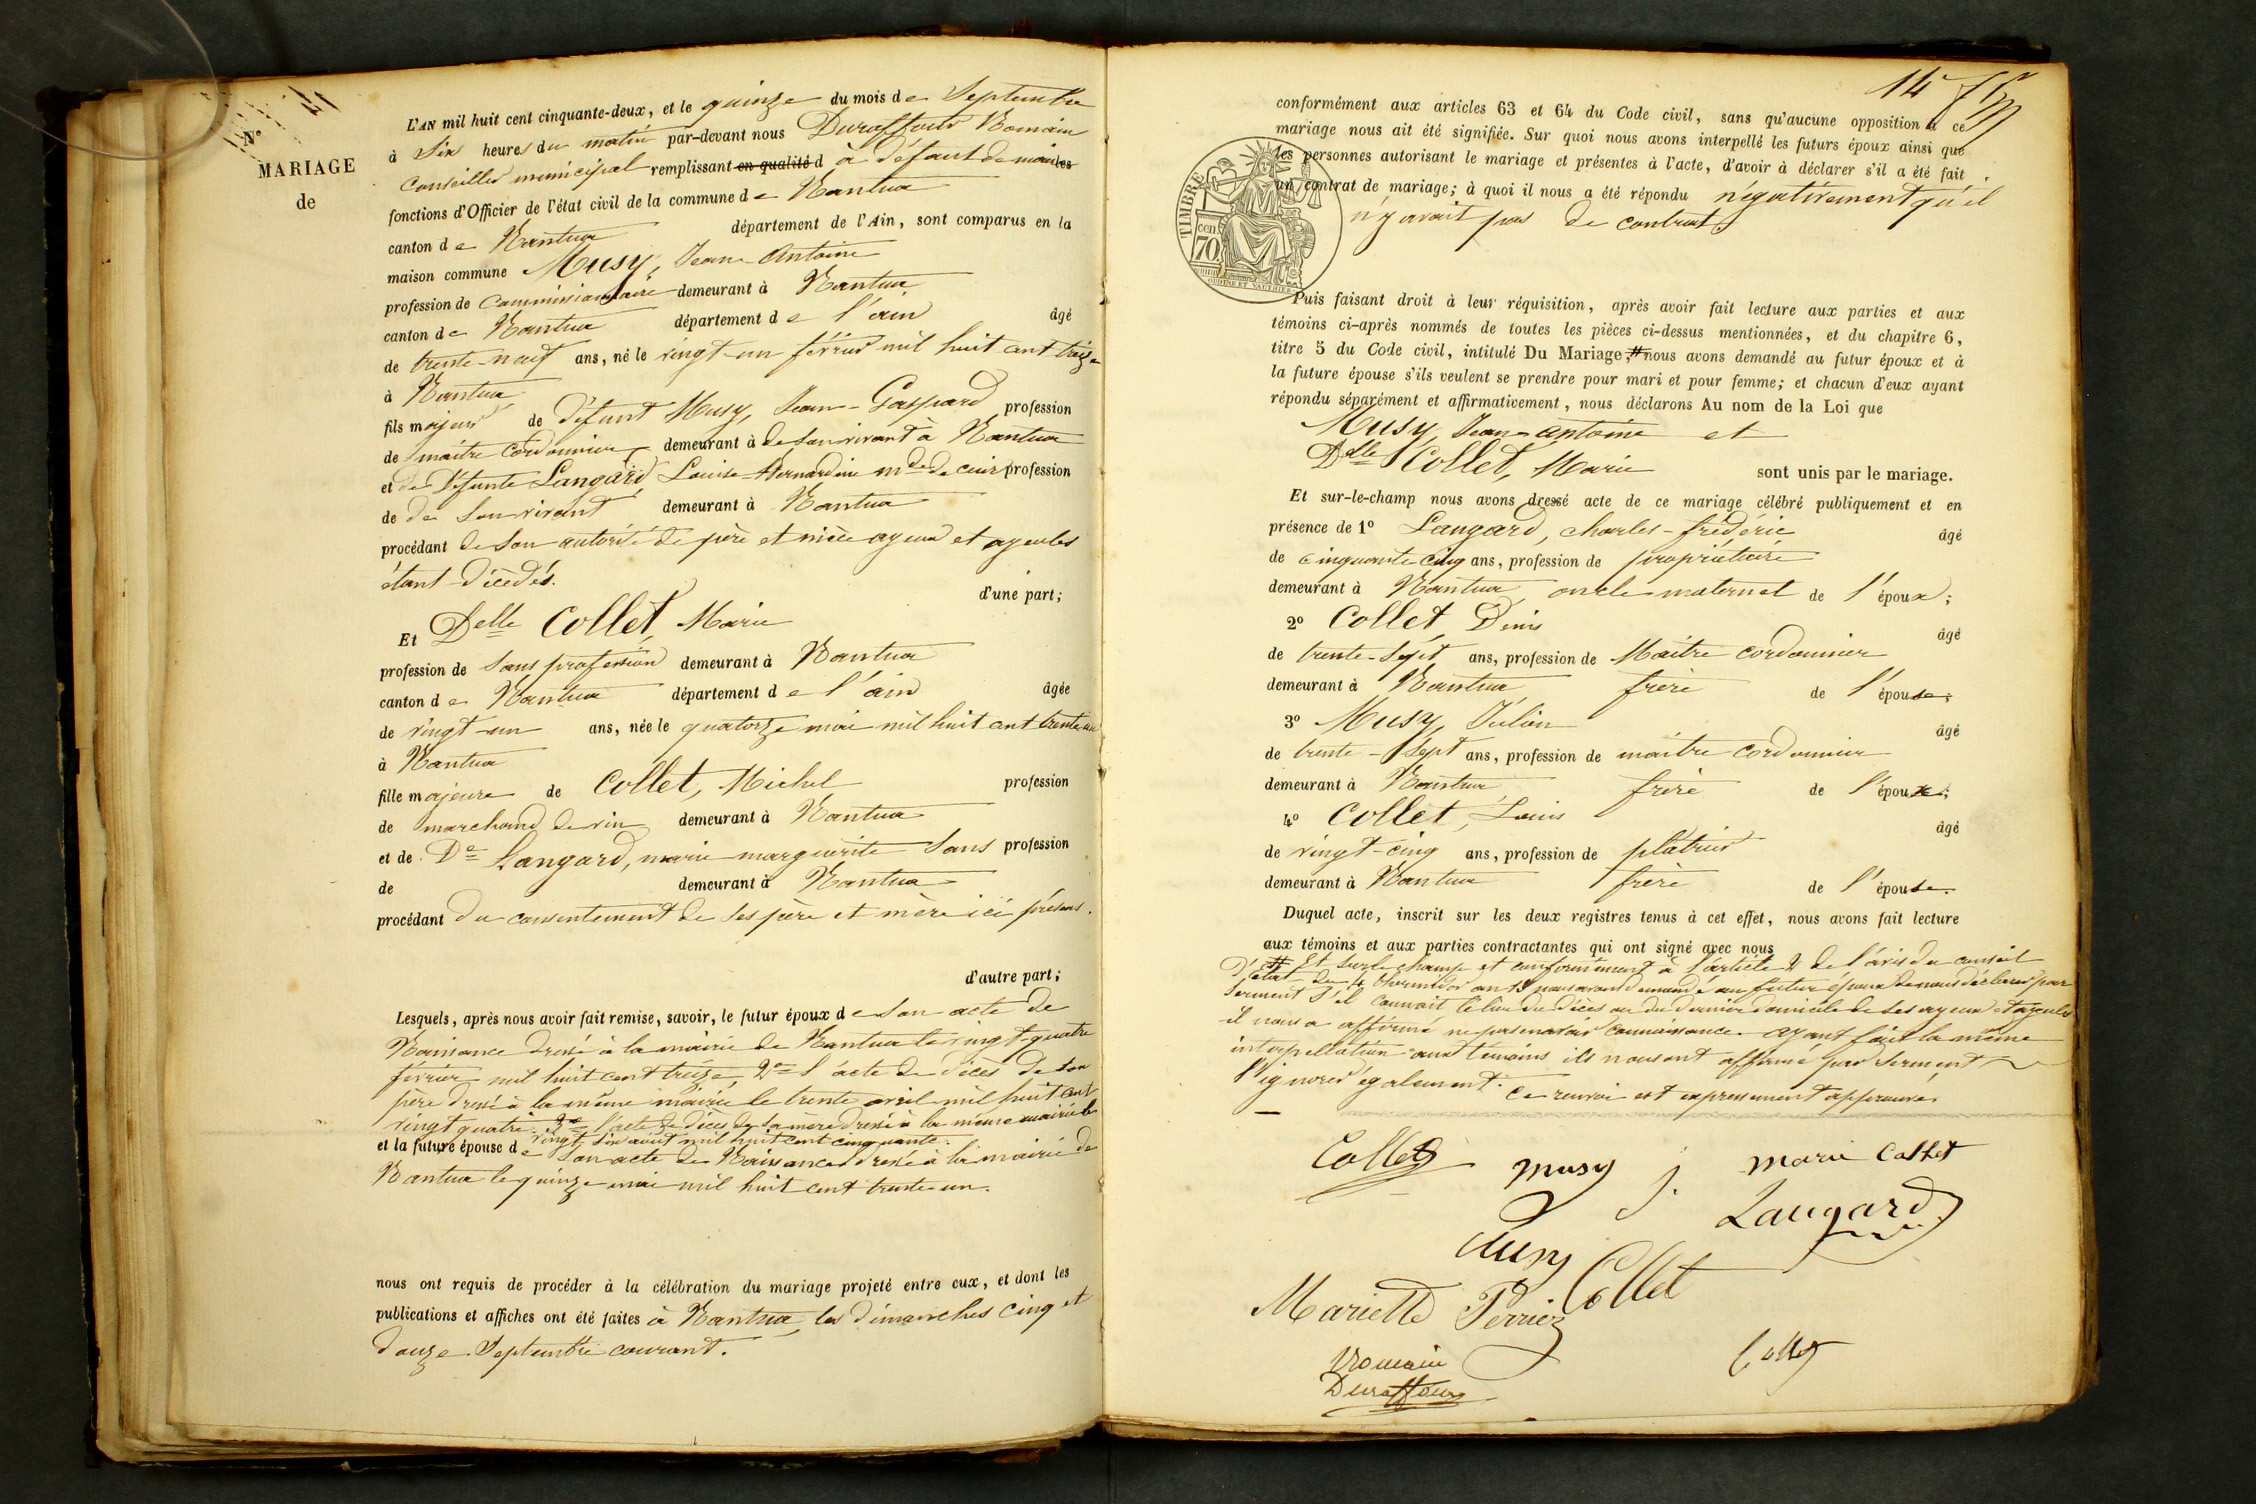 N°
MARIAGE
de
L'AN mil huit cent cinquante-deux, et le quinze du mois de Septembre
à Six heures du matin par-devant nous Duraffour Romain
Conseiller municipal remplissant en qualité d à défaut de maire les
fonctions d'Officier de l'état civil de la commune de Nantua
canton de Nantua département de l'Ain, sont comparus en la
maison commune Musy, Jean-Antoine
profession de Commissionnaire demeurant à Nantua
canton de Nantua département de l'ain âgé
de trente-neuf ans, né le vingt-un février mil huit cent treize
à Nantua
fils majeur de défunt Musy, Jean-Gaspard profession
de maître Cordonnier demeurant à de son vivant à Nantua
et de Défunte Langard Louise-Bernardine mde de cuir profession
de de son vivant demeurant à Nantua
procédant de son autorité de père et mère ayeux et ayeules
étant décédés.
d'une part;
Et Delle Collet, Marie
profession de Sans profession demeurant à Nantua
canton de Nantua département de l'ain âgée
de vingt-un ans, née le quatorze mai mil huit cent trente un
à Nantua
fille majeure de Collet, Michel profession
de marchand de vin demeurant à Nantua
et de De Langard, marie marguerite Sans profession
de demeurant à Nantua
procédant du consentement de ses père et mère ici présens.
d'autre part;
Lesquels, après nous avoir fait remise, savoir, le futur époux de son acte de
Naissance dressé à la mairie de Nantua le vingt-quatre
février mil huit cent treize 2° l'acte de décès de son
père dressé à la même mairie le trente avril mil huit cent
vingt quatre. 3° l'acte de décès de sa mère dressé à la même mairie le
vingt six août mil huit cent cinquante.
et la future épouse de Son acte de Naissance dressé à la mairie de
Nantua le quinze mai mil huit cent trente-un.
nous ont requis de procéder à la célébration du mariage projeté entre eux, et dont les
publications et affiches ont été faites à Nantua, les dimanches cinq et
douze Septembre courant.
14
conformément aux articles 63 et 64 du Code civil, sans qu'aucune opposition à ce
mariage nous ait été signifiée. Sur quoi nous avons interpellé les futurs époux ainsi que
les personnes autorisant le mariage et présentes à l'acte, d'avoir à déclarer s'il a été fait
un contrat de mariage; à quoi il nous a été répondu négativement qu'il
n'y avait pas de contrat.
TIMBRE
cen
70
Puis faisant droit à leur réquisition, après avoir fait lecture aux parties et aux
témoins ci-après nommés de toutes les pièces ci-dessus mentionnées, et du chapitre 6,
titre 5 du Code civil, intitulé Du Mariage, # nous avons demandé au futur époux et à
la future épouse s'ils veulent se prendre pour mari et pour femme; et chacun d'eux ayant
répondu séparément et affirmativement, nous déclarons Au nom de la Loi que
Musy, Jean-antoine et
Delle Collet, Marie sont unis par le mariage.
Et sur-le-champ nous avons dressé acte de ce mariage célébré publiquement et en
présence de 1° Langard, charles-frédéric âgé
de cinquante cinq ans, profession de propriétaire
demeurant à Nantua, oncle maternel de l'époux;
2° Collet, Denis âgé
de trente-sept ans, profession de Maître cordonnier
demeurant à Nantua, frère de l'épouse;
3° Musy, Julien âgé
de trente-sept ans, profession de maître cordonnier
demeurant à Nantua, frère de l'époux;
4° Collet, Louis âgé
de vingt-cinq ans, profession de plâtrier
demeurant à Nantua frère de l'épouse.
Duquel acte, inscrit sur les deux registres tenus à cet effet, nous avons fait lecture
aux témoins et aux parties contractantes qui ont signé avec nous
# Et sur le champ et conformément à l'article 2 de l'avis du conseil
d'état du 4 thermidor an 13 nous avons demandé au futur époux de nous déclarer par
serment s'il connait le lieu du décès ou du dernier domicile de ses ayeux et ayeules
il nous a affirmé ne pas en avoir connaissance. ayant fait la même
interpellation aux témoins ils nous ont affirmé par serment
l'ignorer également. Ce renvoi est expressement approuvé
Collet musy j. marie Collet
Langard
Musy Collet
Mariette Perrier
Romain
Duraffour
Collet